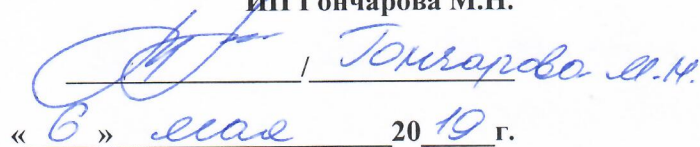 ИП Гончарова М.Н.
/ Гончарова М.Н.
« 6 » мая 20 19 г.